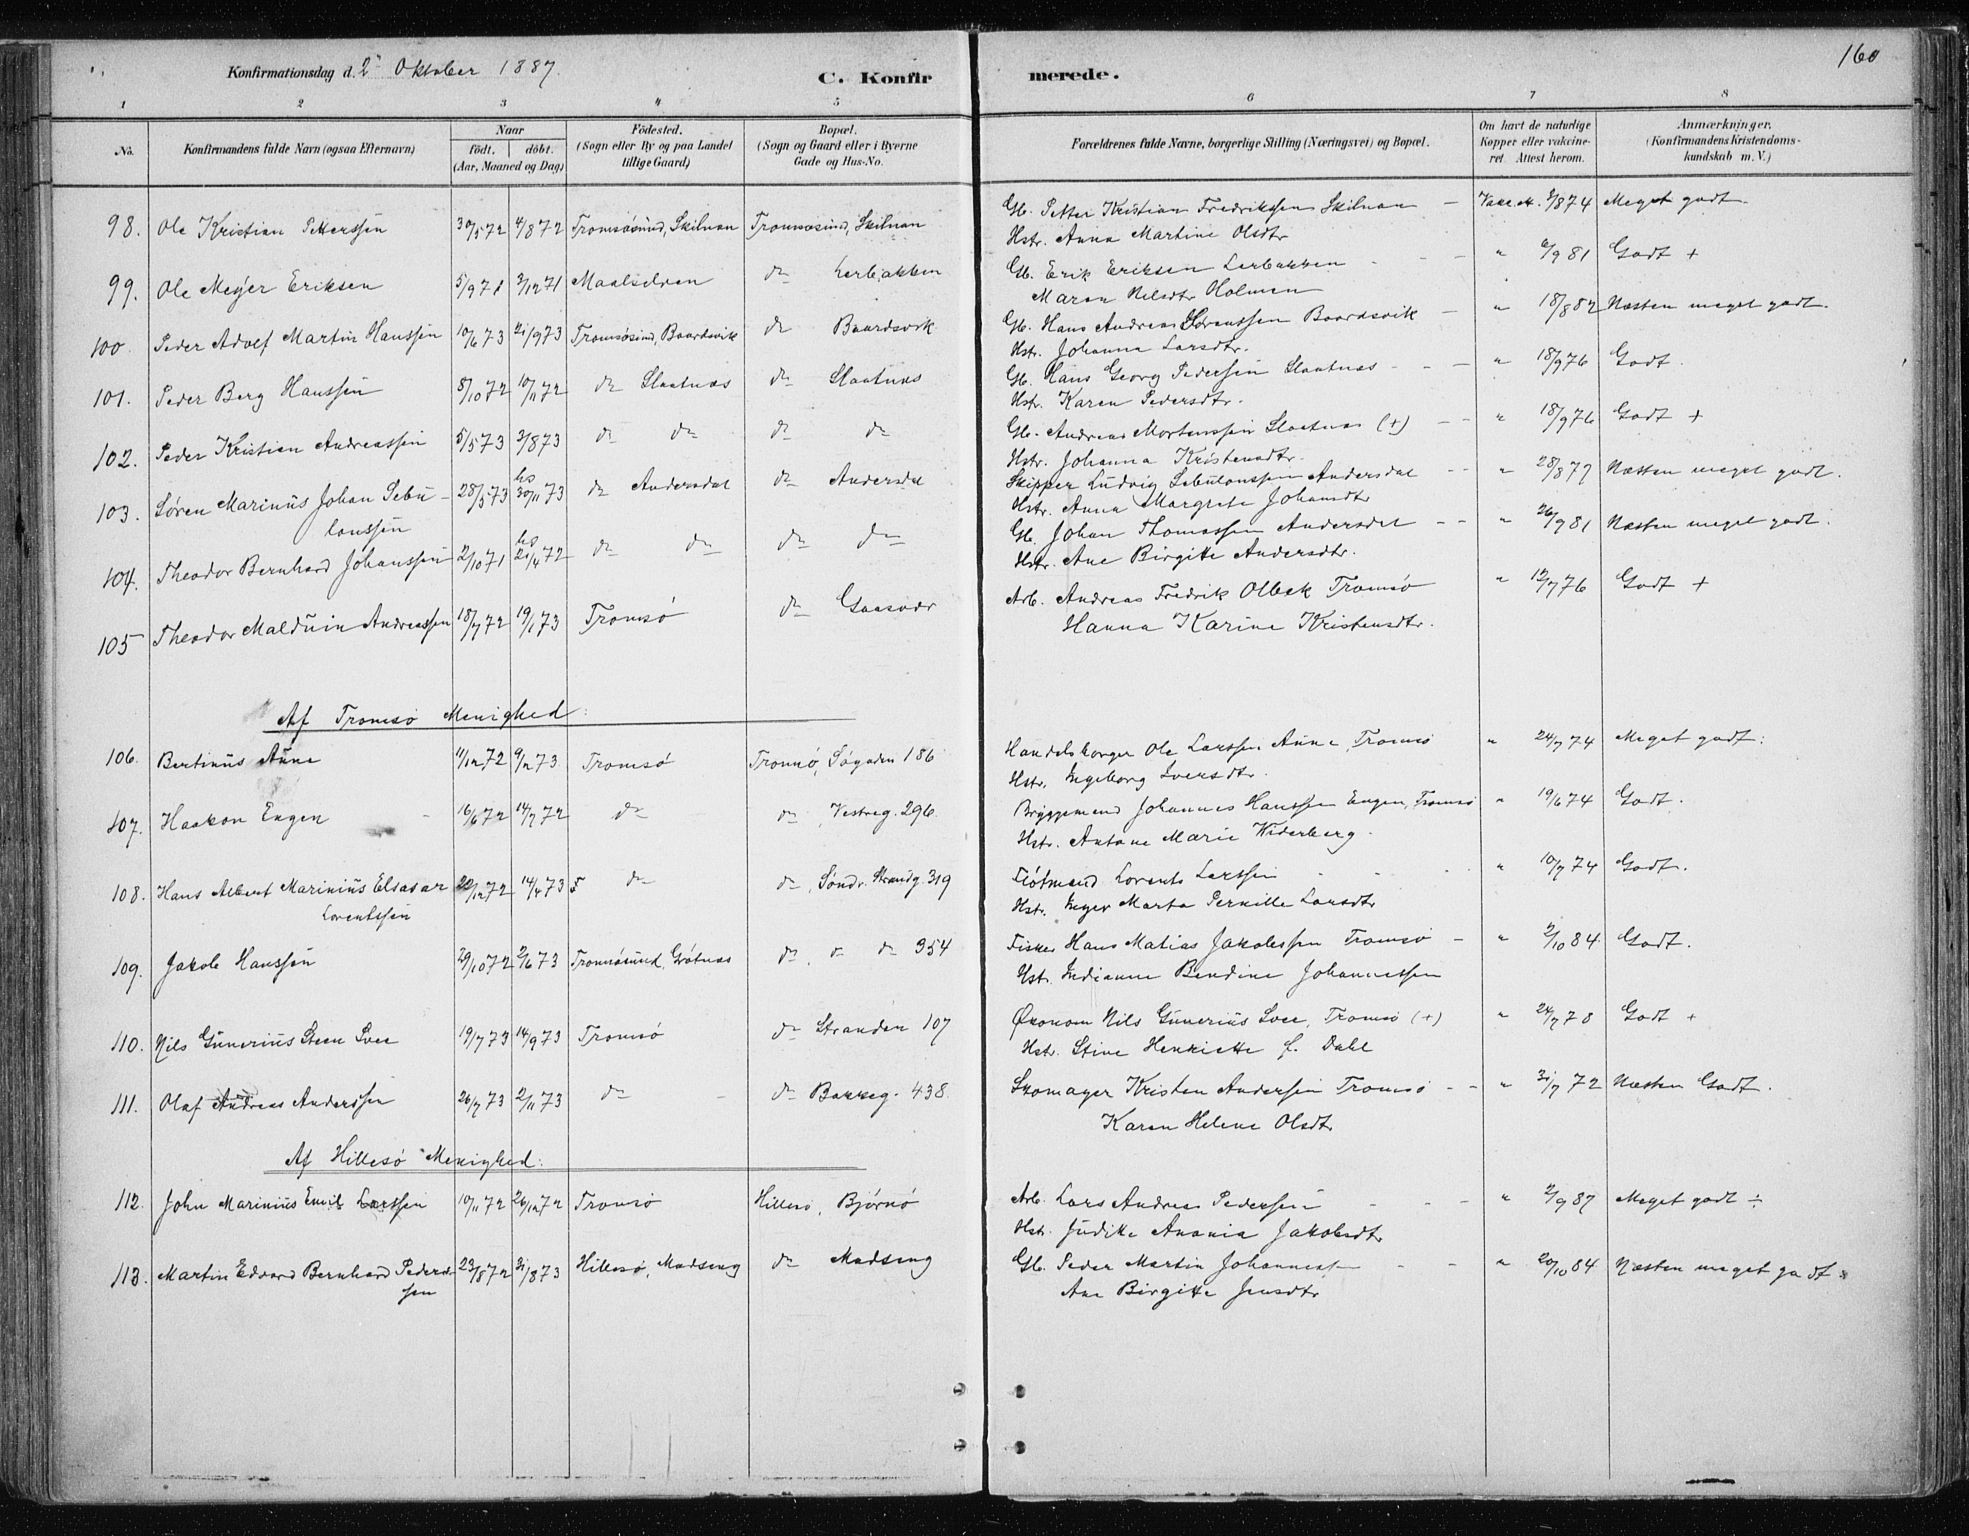 160
Konfirmationsdag d. 2den Oktober 1887.
C. Konfirmerede.
1 2 3 4 5 6 7 8
No. Konfirmandens fulde Navn (ogsaa Efternavn) Naar födt. döbt. (Aar, Maaned og Dag) Födested. (Sogn eller By og paa Landet tillige Gaard) Bopæl. (Sogn og Gaard eller i Byerne Gade og Hus-No. Forældrenes fulde Navne, borgerlige Stilling (Næringsvei) og Bopæl. Om havt de naturlige Kopper eller vakcineret. Attest herom. Anmærkninger, (Konfirmandens Kristendomskundskab m. V.)
98. Ole Kristian Petterssen 30/5 72 4/8 72 Tromsøsund, Skilnan Tromsøsund, Skilnan Gb. Petter Kristian Fredrikssen Skilnan - Vakc. A. /8 74 Meget godt
Hstr. Anna Martine Olsdtr
99. Ole Meyer Eriksen 5/9 71 3/12 71 Maalselven do Lerbakken Gb. Erik Eriksen Lerbakken - " 6/9 81 Godt +
Maren Nilsdtr Holmen
100. Peder Adolf Martin Hanssen 10/6 73 21/9 73 Tromsøsund, Baardsvik do Baardsvik Gb. Hans Andreas Sørenssen Baardsvik - " 18/8 82 Næsten meget godt.
Hstr. Johanna Larsdtr.
101. Peder Berg Hanssen 8/10 72 10/11 72 do Slaatnes do Slaatnes Gb. Hans Georg Pedersen Slaatnes - " 18/9 76 Godt.
Hstr. Karen Pedersdtr.
102. Peder Kristian Andreassen 5/5 73 3/8 73 do do do do Gb. Andreas Mortenssen Slaatnes (+) - " 18/9 76 Godt +
Hstr. Johanna Kristensdtr.
103. Søren Marinus Johan Sebulonssen 28/5 73 hs 30/11 73 do Andersdal do Andersdal Skipper Ludvig Sebulonssen Andersdal - " 28/8 77 Næsten meget godt.
Hstr. Anna Margrete Johansdtr
104. Theodor Bernhard Johanssen 2/10 71 hs 21/4 72 do do do do Gb. Johan Thomassen Andersdal - " 26/9 81 Næsten meget godt.
Hstr. Ane Birgitte Andersdtr.
105 Theodor Malduin Andreassen 18/7 72 19/1 73 Tromsø do Gaasvær Arb. Andreas Fredrik Olbek Tromsø " 12/7 76 Godt +
Hanna Karine Kristensdtr.
Af Tromsø Menighed:
106. Bertinus Aune 11/12 72 9/2 73. Tromsø Tromsø, Søgaden 186 Handelsborger Ole Larssen Aune, Tromsø " 24/7 74 Meget godt:
Hstr. Ingeborg Iversdtr.
107. Haakon Engen 16/6 72 14/7 72 do do Vestreg. 296. Bryggemand Johannes Hanssen Engen, Tromsø " 19/6 74 Godt.
Hstr. Antone Marie Widerberg.
108. Hans Albert Marinius Elsasar Lorentssen 22/12 72 14/4 73 do do, Søndr. Strandg. 319 Flòtmand Lorents Larssen " 10/7 74 Godt.
Hstr. Inger Marta Pernille Larsdtr
109. Jakob Hanssen 29/10 72 2/6 73 Tromsøsund, Grøtnes do, do do 354 Fisker Hans Matias Jakobssen Tromsø - " 2/10 84 Godt.
Hstr. Indianne Bendine Johannessen
110. Nils Gunerius Steen Svee 19/7 73 14/9 73 Tromsø do Stranden 107 Økonom Nils Gunerius Svee, Tromsø (+) " 24/7 78 Godt +
Hstr. Stine Henriette f. Dahl
111. Olaf Andreas Anderssen 26/7 73 2/11 73 do do Bakkeg. 438. Skomager Kristen Andersen Tromsø - " 31/7 72 Næsten Godt.
Karen Helene Olsdtr
Af Hillesø Menighed:
112. John Marinius Emil Larssen 10/11 72 26/12 72 Tromsø Hillesø, Bjørnø Arb. Lars Andreas Pedersen - " 2/9 87 Meget godt ÷
Hstr. Judikke Anania Jakobsdtr
113. Martin Edvard Bernhard Pederssen 23/8 72 31/8 73 Hillesø, Madseng do Madseng Gb. Peder Martin Johannessen - " 20/10 84 Næsten meget godt.
Ane Birgitte Jensdtr